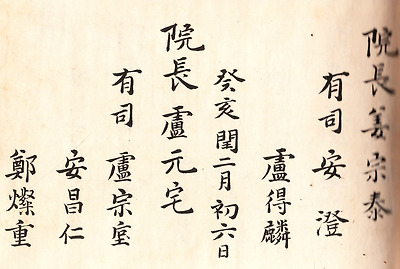 院長姜宗泰
有司安澄
盧得麟
癸亥閏二月初六日
院長盧元宅
有司盧宗垕
安昌仁
鄭燦重